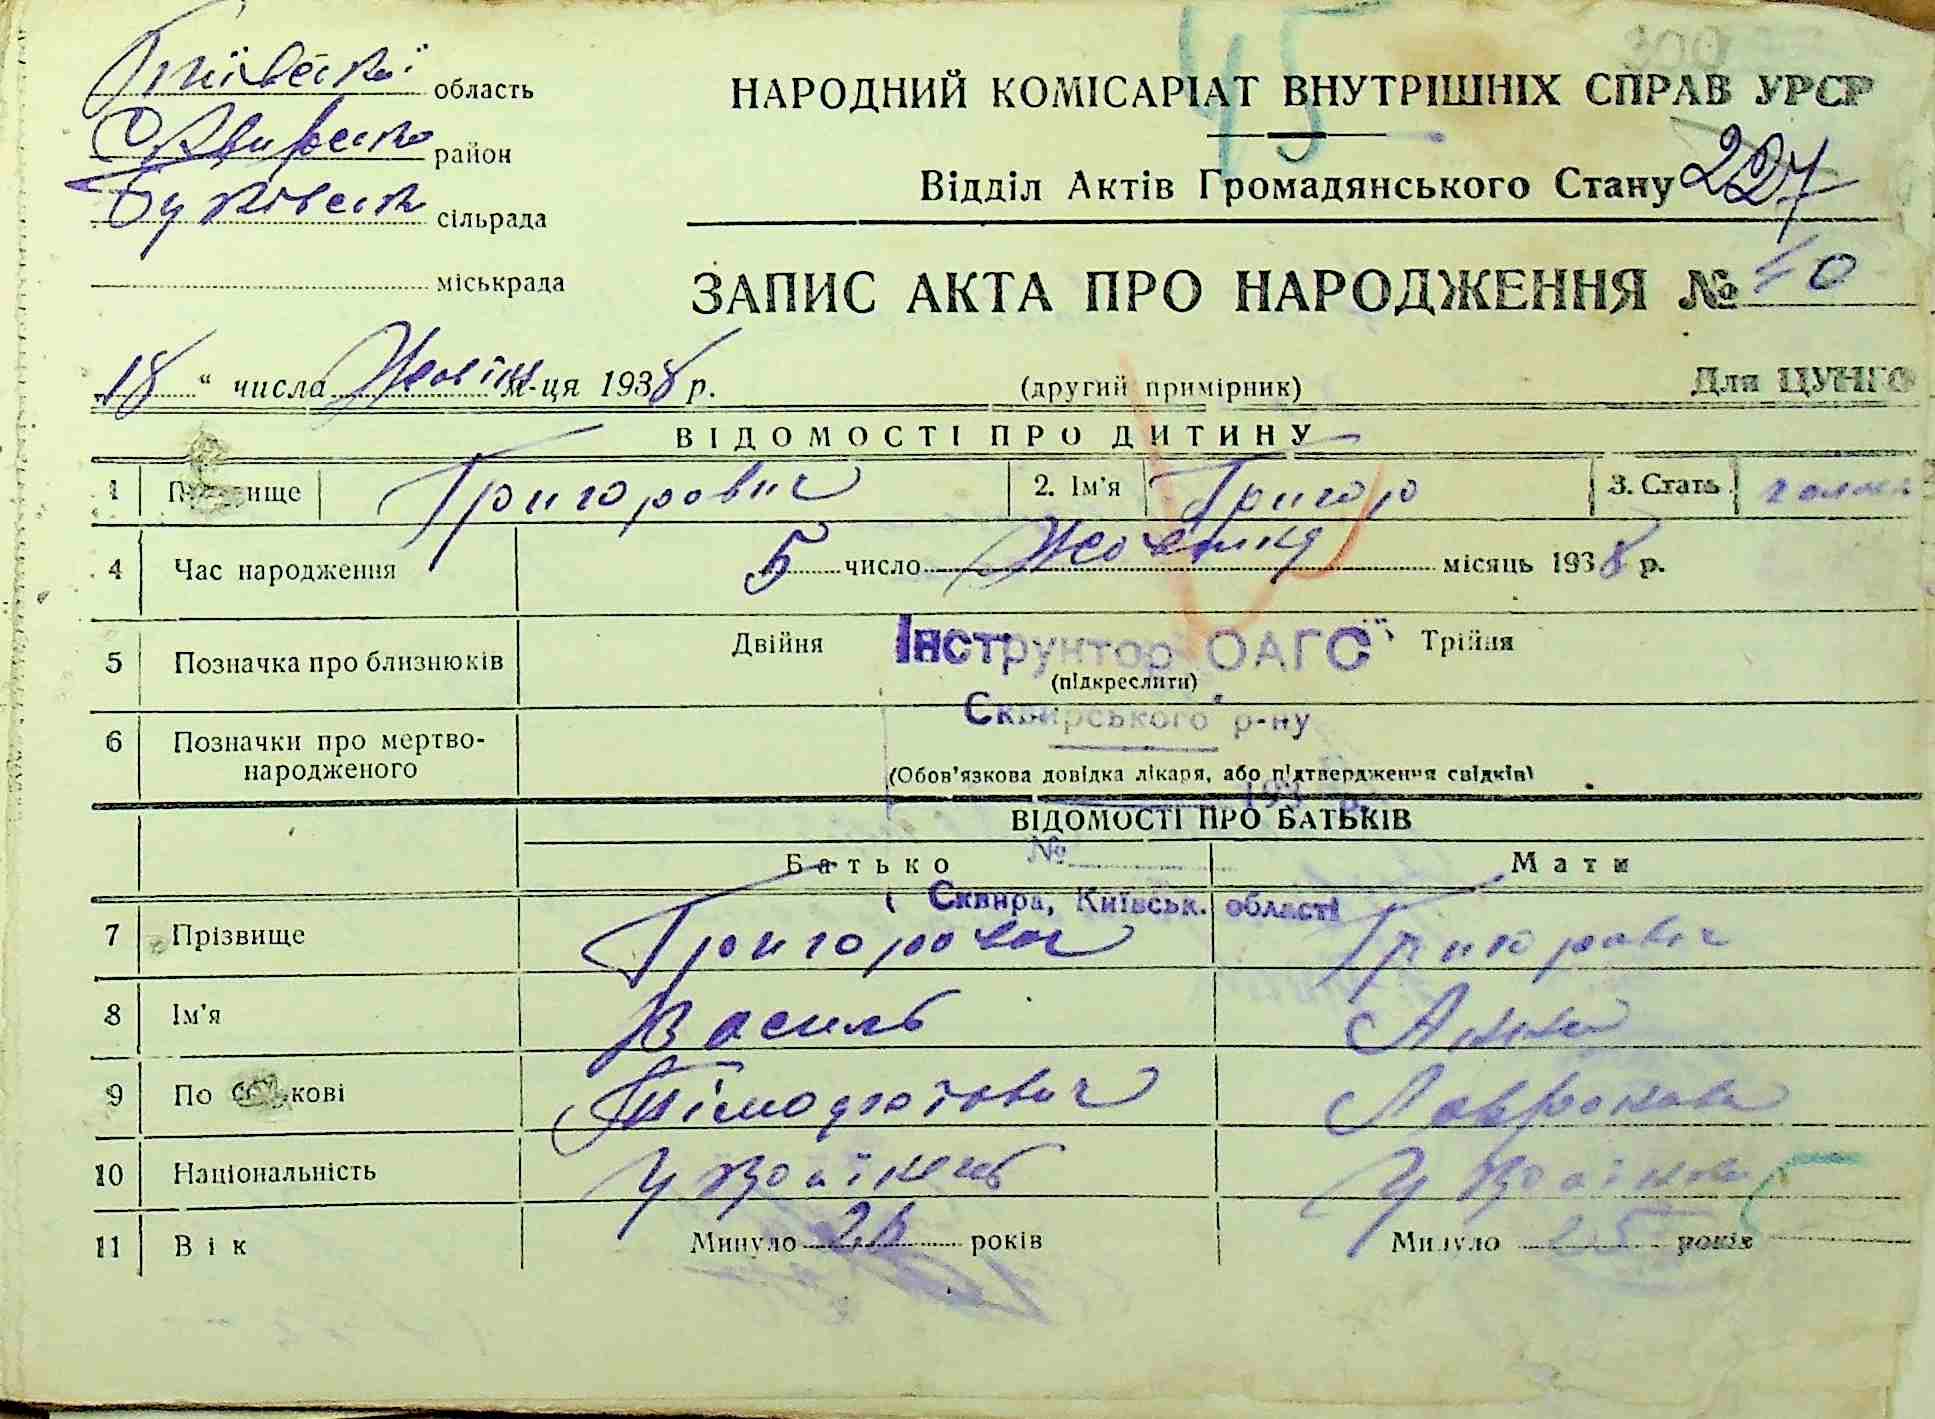 Київської область
Сквирсько район
Буківська сільрада
міськрада
45
НАРОДНИЙ КОМІСАРІАТ ВНУТРІШНІХ СПРАВ УРСР
Відділ Актів Громадянського Стану 227
ЗАПИС АКТА ПРО НАРОДЖЕННЯ № 40
„18“ числа Жовтня м-ця 1938 р. (другий примірник) Для ЦУНГО
ВІДОМОСТІ ПРО ДИТИНУ
1 Прізвище Григорович 2. Ім'я Григор 3. Стать
4 Час народження 5 число Жовтня місяць 1938 р.
5 Позначка про близнюків Двійня Трійня
(підкреслити)
Інструктор ОАГС
Сквирського р-ну
6 Позначки про мертво-
народженого
(Обов'язкова довідка лікаря, або підтвердження свідків)
193 р.
ВІДОМОСТІ ПРО БАТЬКІВ
№
Батько Мати
Сквира, Київськ. області
7 Прізвище Григорович Григорович
8 Ім'я Василь Анна
9 По батькові Тімофійович
10 Національність
11 Вік Минуло років Минуло 25 років